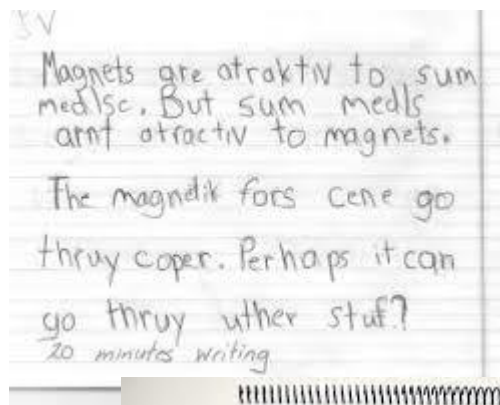 Magnets are atraktiv to sum
medlsc. But sum medls
arnt atractiv to magnets.
The magnetik fors cene go
thruy coper. Perhaps it can
go thruy uther stuf?
20 minutes writing